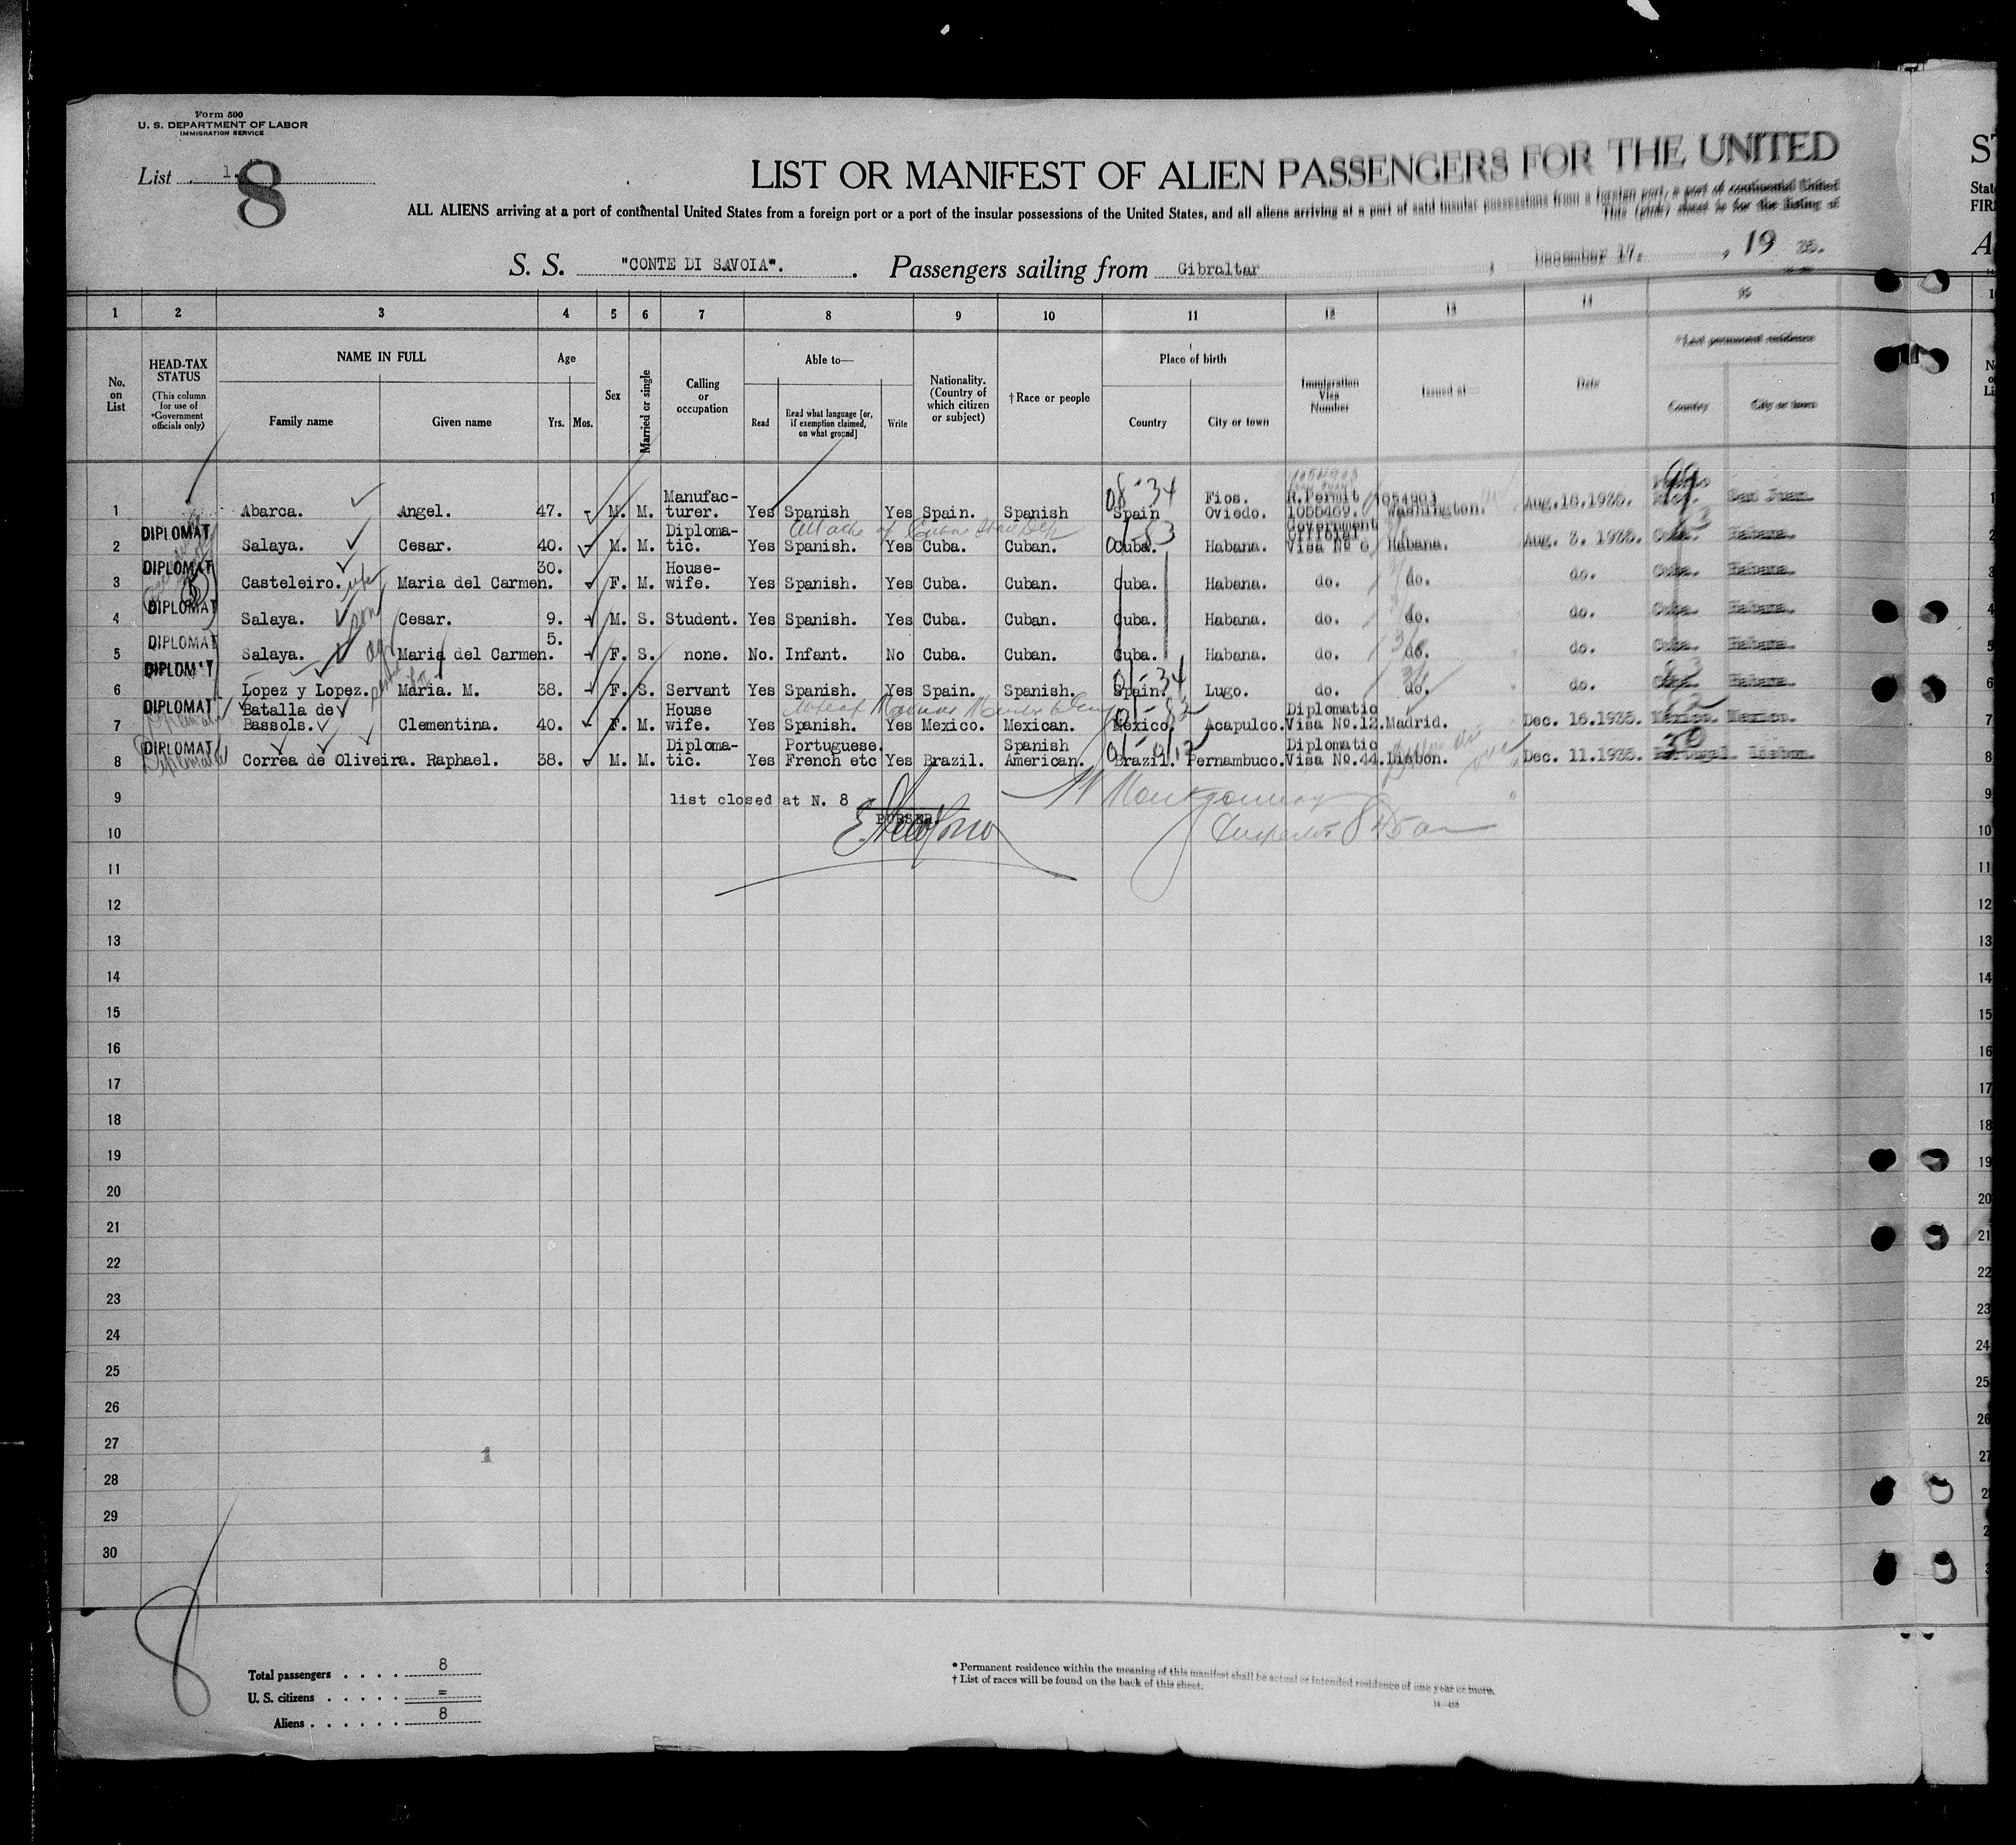 Form 500
U. S. DEPARTMENT OF LABOR
IMMIGRATION SERVICE
List 1.
8
LIST OR MANIFEST OF ALIEN PASSENGERS FOR THE UNITED
ALL ALIENS arriving at a port of continental United States from a foreign port or a port of the insular possessions of the United States, and all aliens arriving at a port of said insular possessions from a foreign port, a port of continental United
This (pink) sheet is for the listing of
S. S. "CONTE DI SAVOIA". Passengers sailing from Gibraltar, December 17. , 19 35.
1 2 3 4 5 6 7 8 9 10 11 12 13 14 15
No. on List
HEAD-TAX STATUS (This column for use of Government officials only)
NAME IN FULL Family name Given name
Age Yrs. Mos.
Sex
Married or single
Calling or occupation
Able to— Read Read what language [or, if exemption claimed, on what ground] Write
Nationality. (Country of which citizen or subject)
†Race or people
Place of birth Country City or town
Immigration Visa Number
Issued at—
Date
*Last permanent residence Country City or town
1 Abarca. Angel. 47. - M. M. Manufac-turer. Yes Spanish Yes Spain. Spanish 08-34 Spain Fios. Oviedo. R.Permit 1055469. 1054903 Washington. Aug.16.1935. San Juan. 1
Attache of Cuban State Dep
2 DIPLOMAT Salaya. Cesar. 40. - M. M. Diploma-tic. Yes Spanish. Yes Cuba. Cuban. Cuba. Habana. Government Official Visa Nº 6 Habana. Aug. 3. 1935. Cuba. Habana. 2
3 DIPLOMAT Casteleiro. wife Maria del Carmen. 30. - F. M. House-wife. Yes Spanish. Yes Cuba. Cuban. Cuba. Habana. do. do. do. Cuba. Habana. 3
4 DIPLOMAT Salaya. son Cesar. 9. - M. S. Student. Yes Spanish. Yes Cuba. Cuban. Cuba. Habana. do. do. do. Cuba. Habana. 4
5 DIPLOMAT Salaya. Maria del Carmen. 5. - F. S. none. No. Infant. No Cuba. Cuban. Cuba. Habana. do. do. do. Cuba. Habana. 5
6 DIPLOMAT Lopez y Lopez. Maria. M. 38. - F. S. Servant Yes Spanish. Yes Spain. Spanish. Spain. Lugo. do. do. do. Cuba. Habana. 6
7 DIPLOMAT Batalla de Bassols. Clementina. 40. - F. M. House wife. Yes Spanish. Yes Mexico. Mexican. Mexico. Acapulco. Diplomatic Visa No.12. Madrid. Dec. 16.1935. Mexico. Mexico. 7
8 DIPLOMAT Correa de Oliveira. Raphael. 38. - M. M. Diploma-tic. Yes Portuguese. French etc Yes Brazil. Spanish American. Brazil. Pernambuco. Diplomatic Visa No.44. Lisbon. Dec. 11.1935. Portugal Lisbon. 8
9 list closed at N. 8 9
PURSER.
Montgomery
Inspector 845 am
10 10
11 11
12 12
13 13
14 14
15 15
16 16
17 17
18 18
19 19
20 20
21 21
22 22
23 23
24 24
25 25
26 26
27 1 27
28
29
30
8
Total passengers . . . . 8
U. S. citizens . . . . . =
Aliens . . . . . . 8
* Permanent residence within the meaning of this manifest shall be actual or intended residence of one year or more.
† List of races will be found on the back of this sheet.